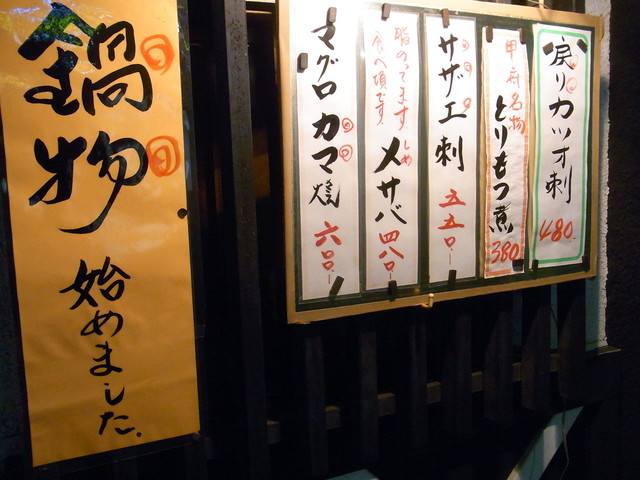 戻りカツオ刺
480.
甲府名物
とりもつ煮
380
サザエ刺
五五〇-
脂のってます
食べ頃です。
しめ
メサバ
四八〇-
マグロカマ焼
六〇〇-
鍋物
始めました.